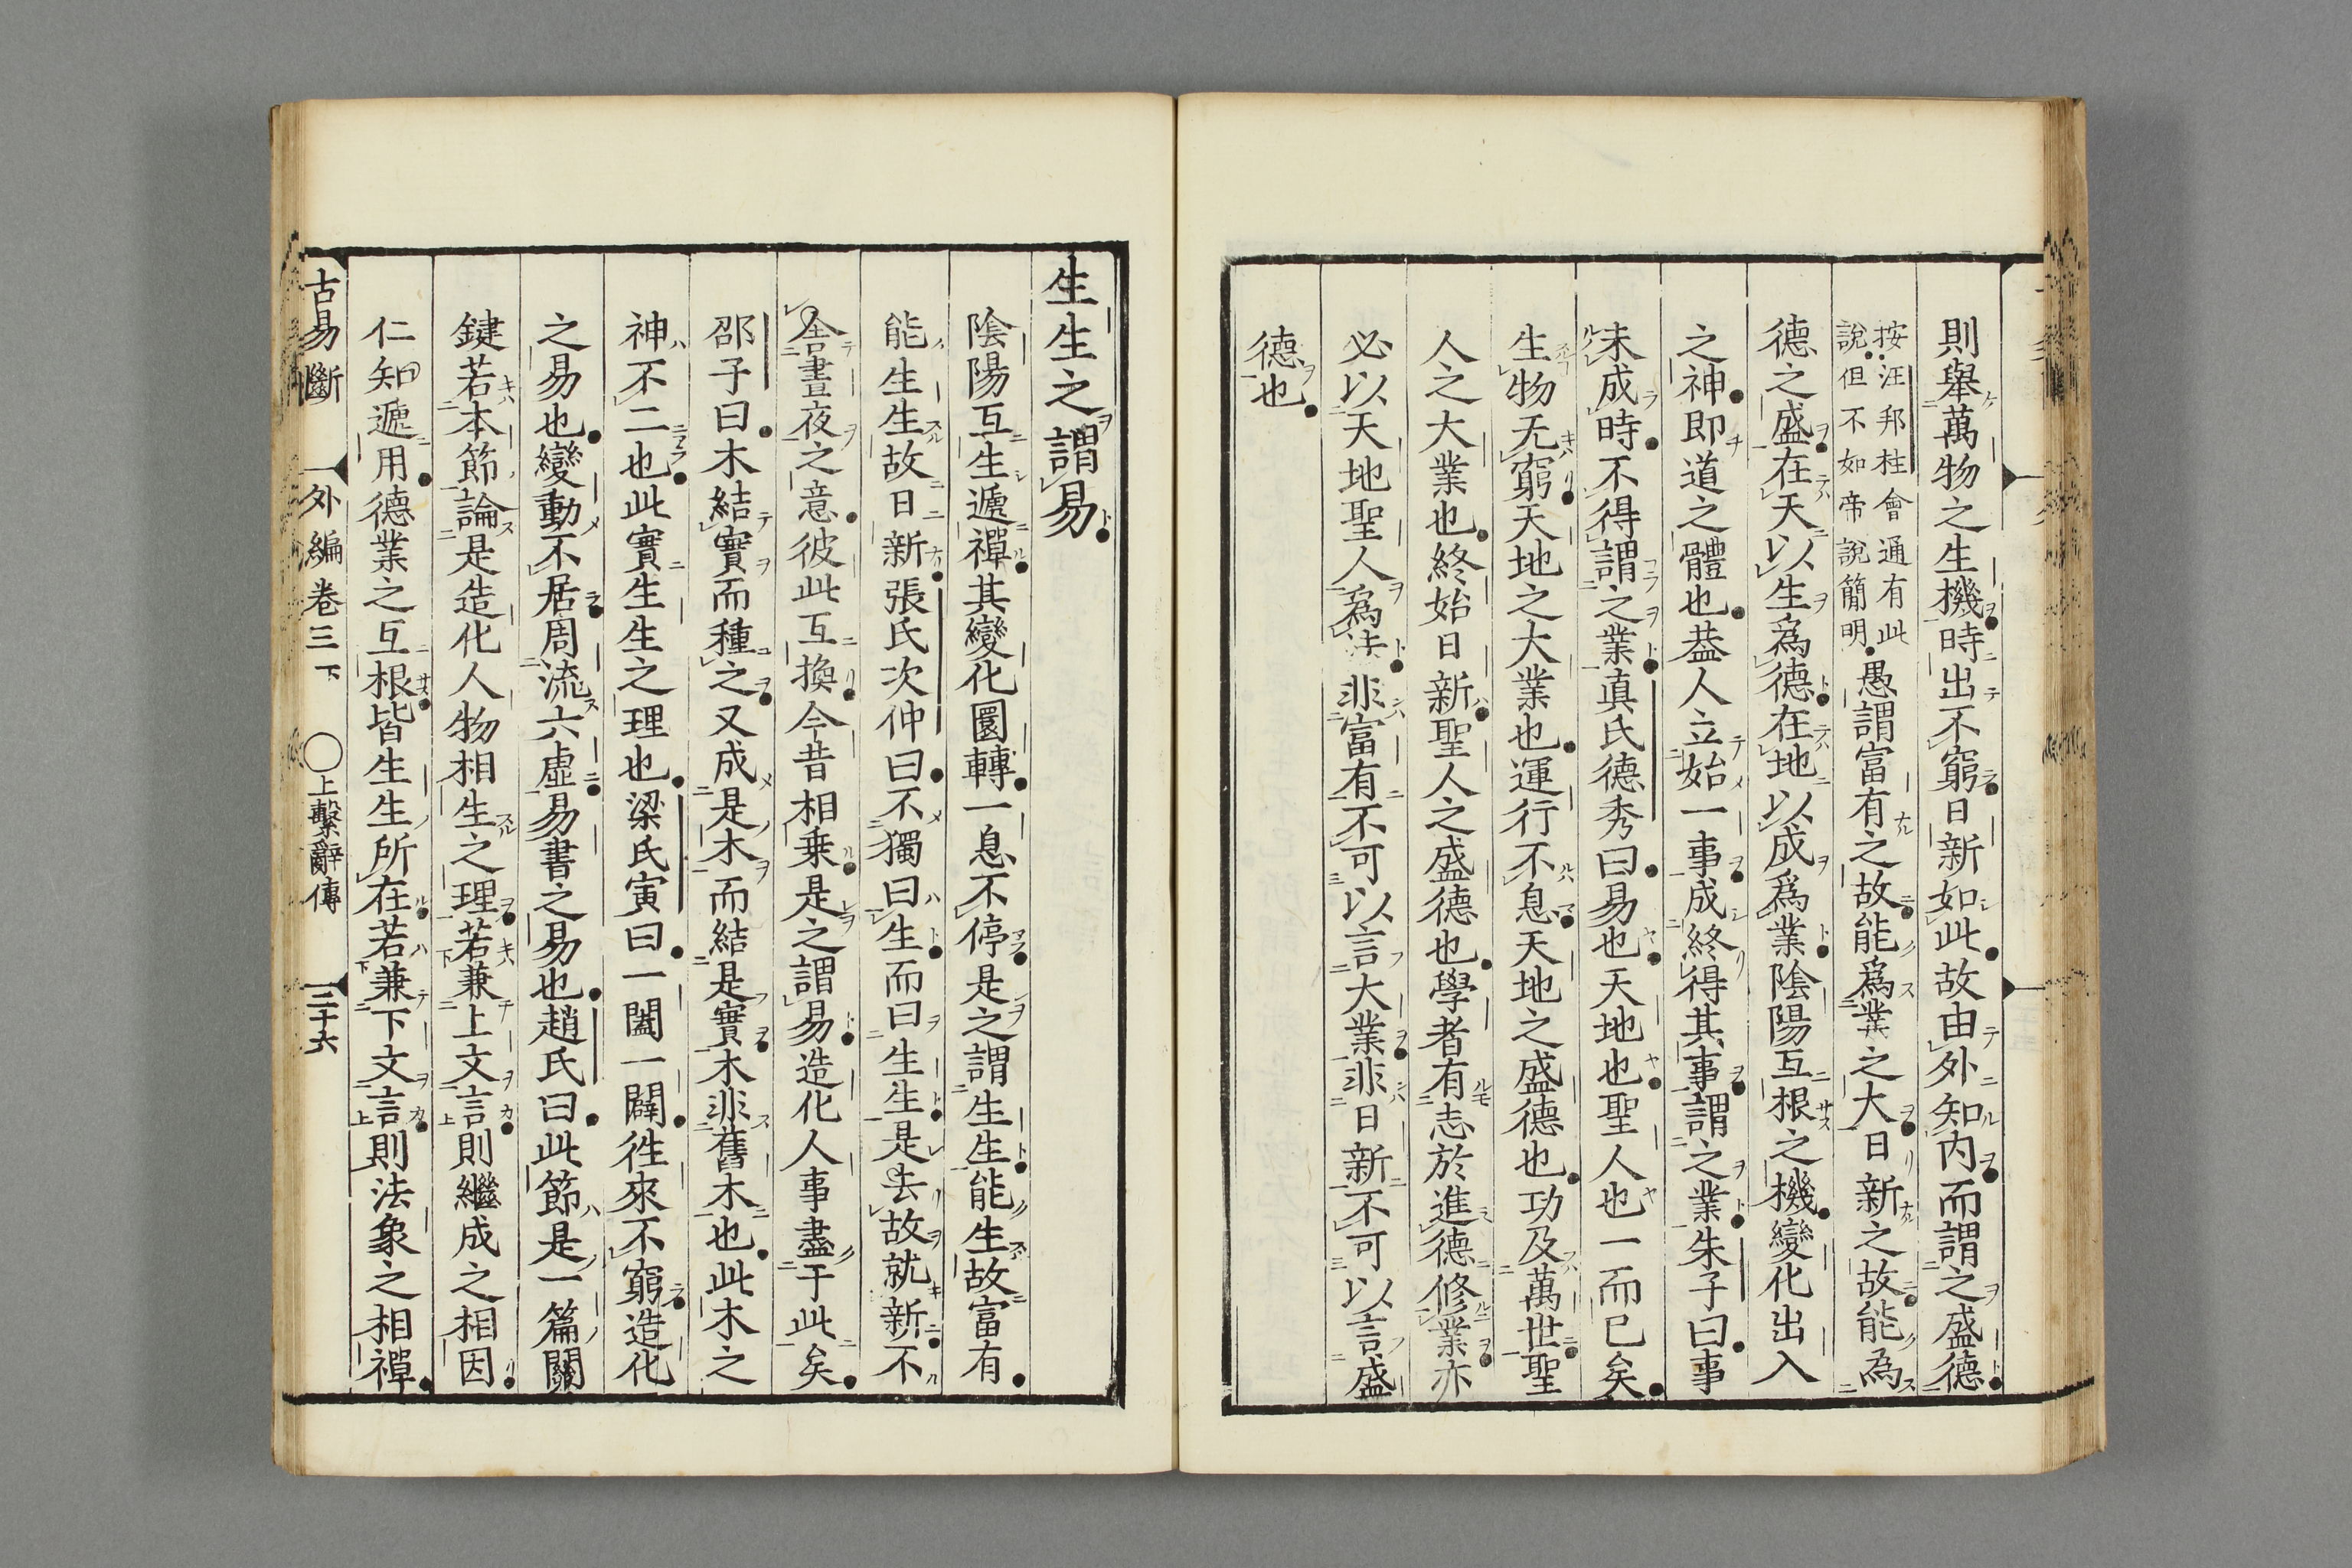 則舉萬物之生機時出不窮日新如此故由外知内而謂之盛德
按汪邦柱會通有此
說但不如帝說簡明
愚謂富有之故能爲業之大日新之故能為
德之盛在天以生爲德在地以成爲業陰陽互根之機變化出入
之神即道之體也蓋人立始一事成終得其事謂之業朱子曰事
未成時不得謂之業真氏德秀曰易也天地也聖人也一而已矣
生物无窮天地之大業也運行不息天地之盛德也功及萬世聖
人之大業也終始日新聖人之盛德也學者有志於進德修業亦
必以天地聖人爲法非富有不可以言大業非日新不可以言盛
德也
生生之謂易
陰陽互生遞禪其變化圜轉一息不停是之謂生生能生故富有
能生生故日新張氏次仲曰不獨曰生而曰生生是去故就新不
舍晝夜之意彼此互換今昔相乘是之謂易造化人事盡于此矣
邵子曰木結實而種之又成是木而結是實木非舊木也此木之
神不二也此實生生之理也梁氏寅曰一闔一闢徃來不窮造化
之易也變動不居周流六虛易書之易也趙氏曰此節是一篇關
鍵若本節論是造化人物相生之理若兼上文言則繼成之相因
仁知遞用德業之互根皆生生所在若兼下文言則法象之相禪
古易斷 外編卷三下 ○上繫辭傳 三十六